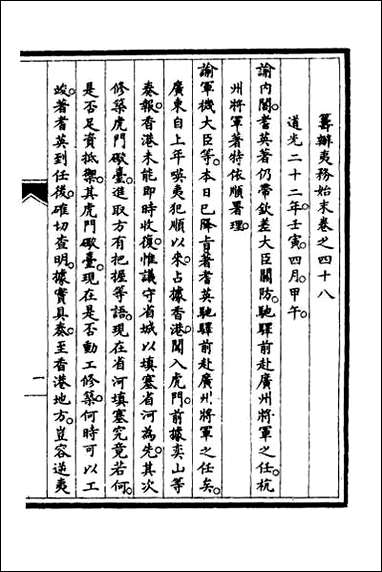 籌辦夷務始末卷之四十八
道光二十二年壬寅四月甲午
諭内閣耆英著仍帶欽差大臣關防馳驛前赴廣州將軍之任杭
州將軍著特依順署理
諭軍機大臣等本日已降旨著耆英馳驛前赴廣州將軍之任矣
廣東自上年𠸄夷犯順以來占據香港闖入虎門前據奕山等
奏報香港未能即時收復惟議守省城以填塞省河為先其次
修築虎門礮臺進取方有把握等語現在省河填塞究竟若何
是否足資抵禦其虎門礮臺現在是否動工修築何時可以工
竣著耆英到任後確切查明據實具奏至香港地方豈容逆夷
一